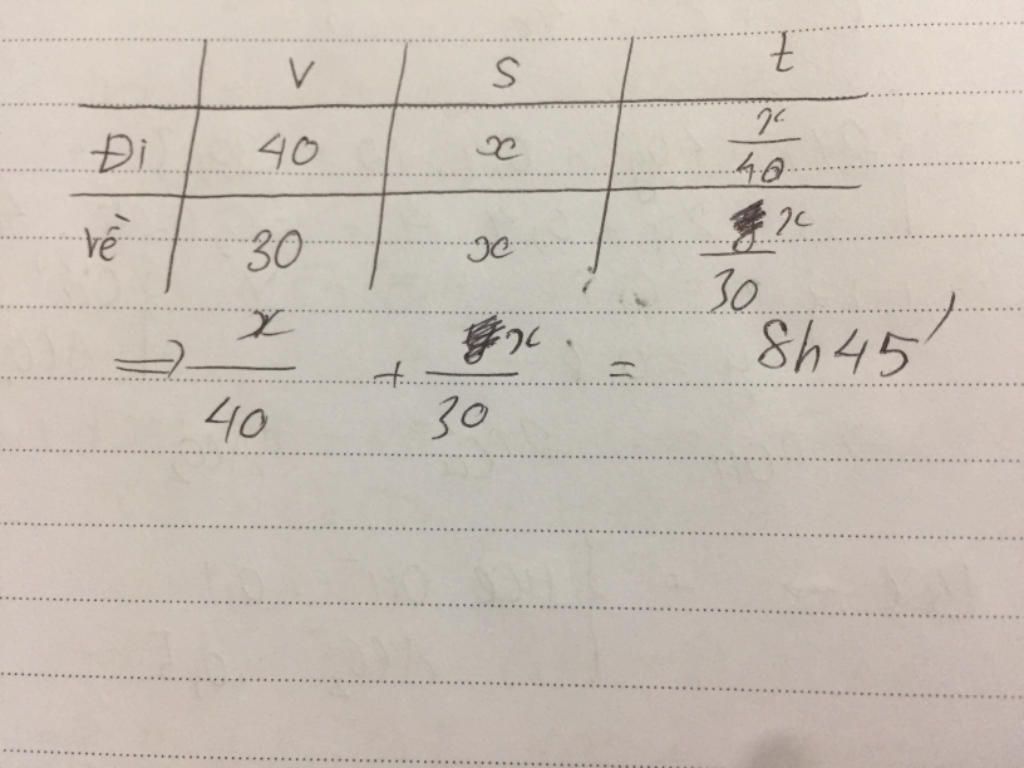 v s t
Đi 40 x x/40
về 30 x x/30
⇒ x/40 + x/30 = 8h45'